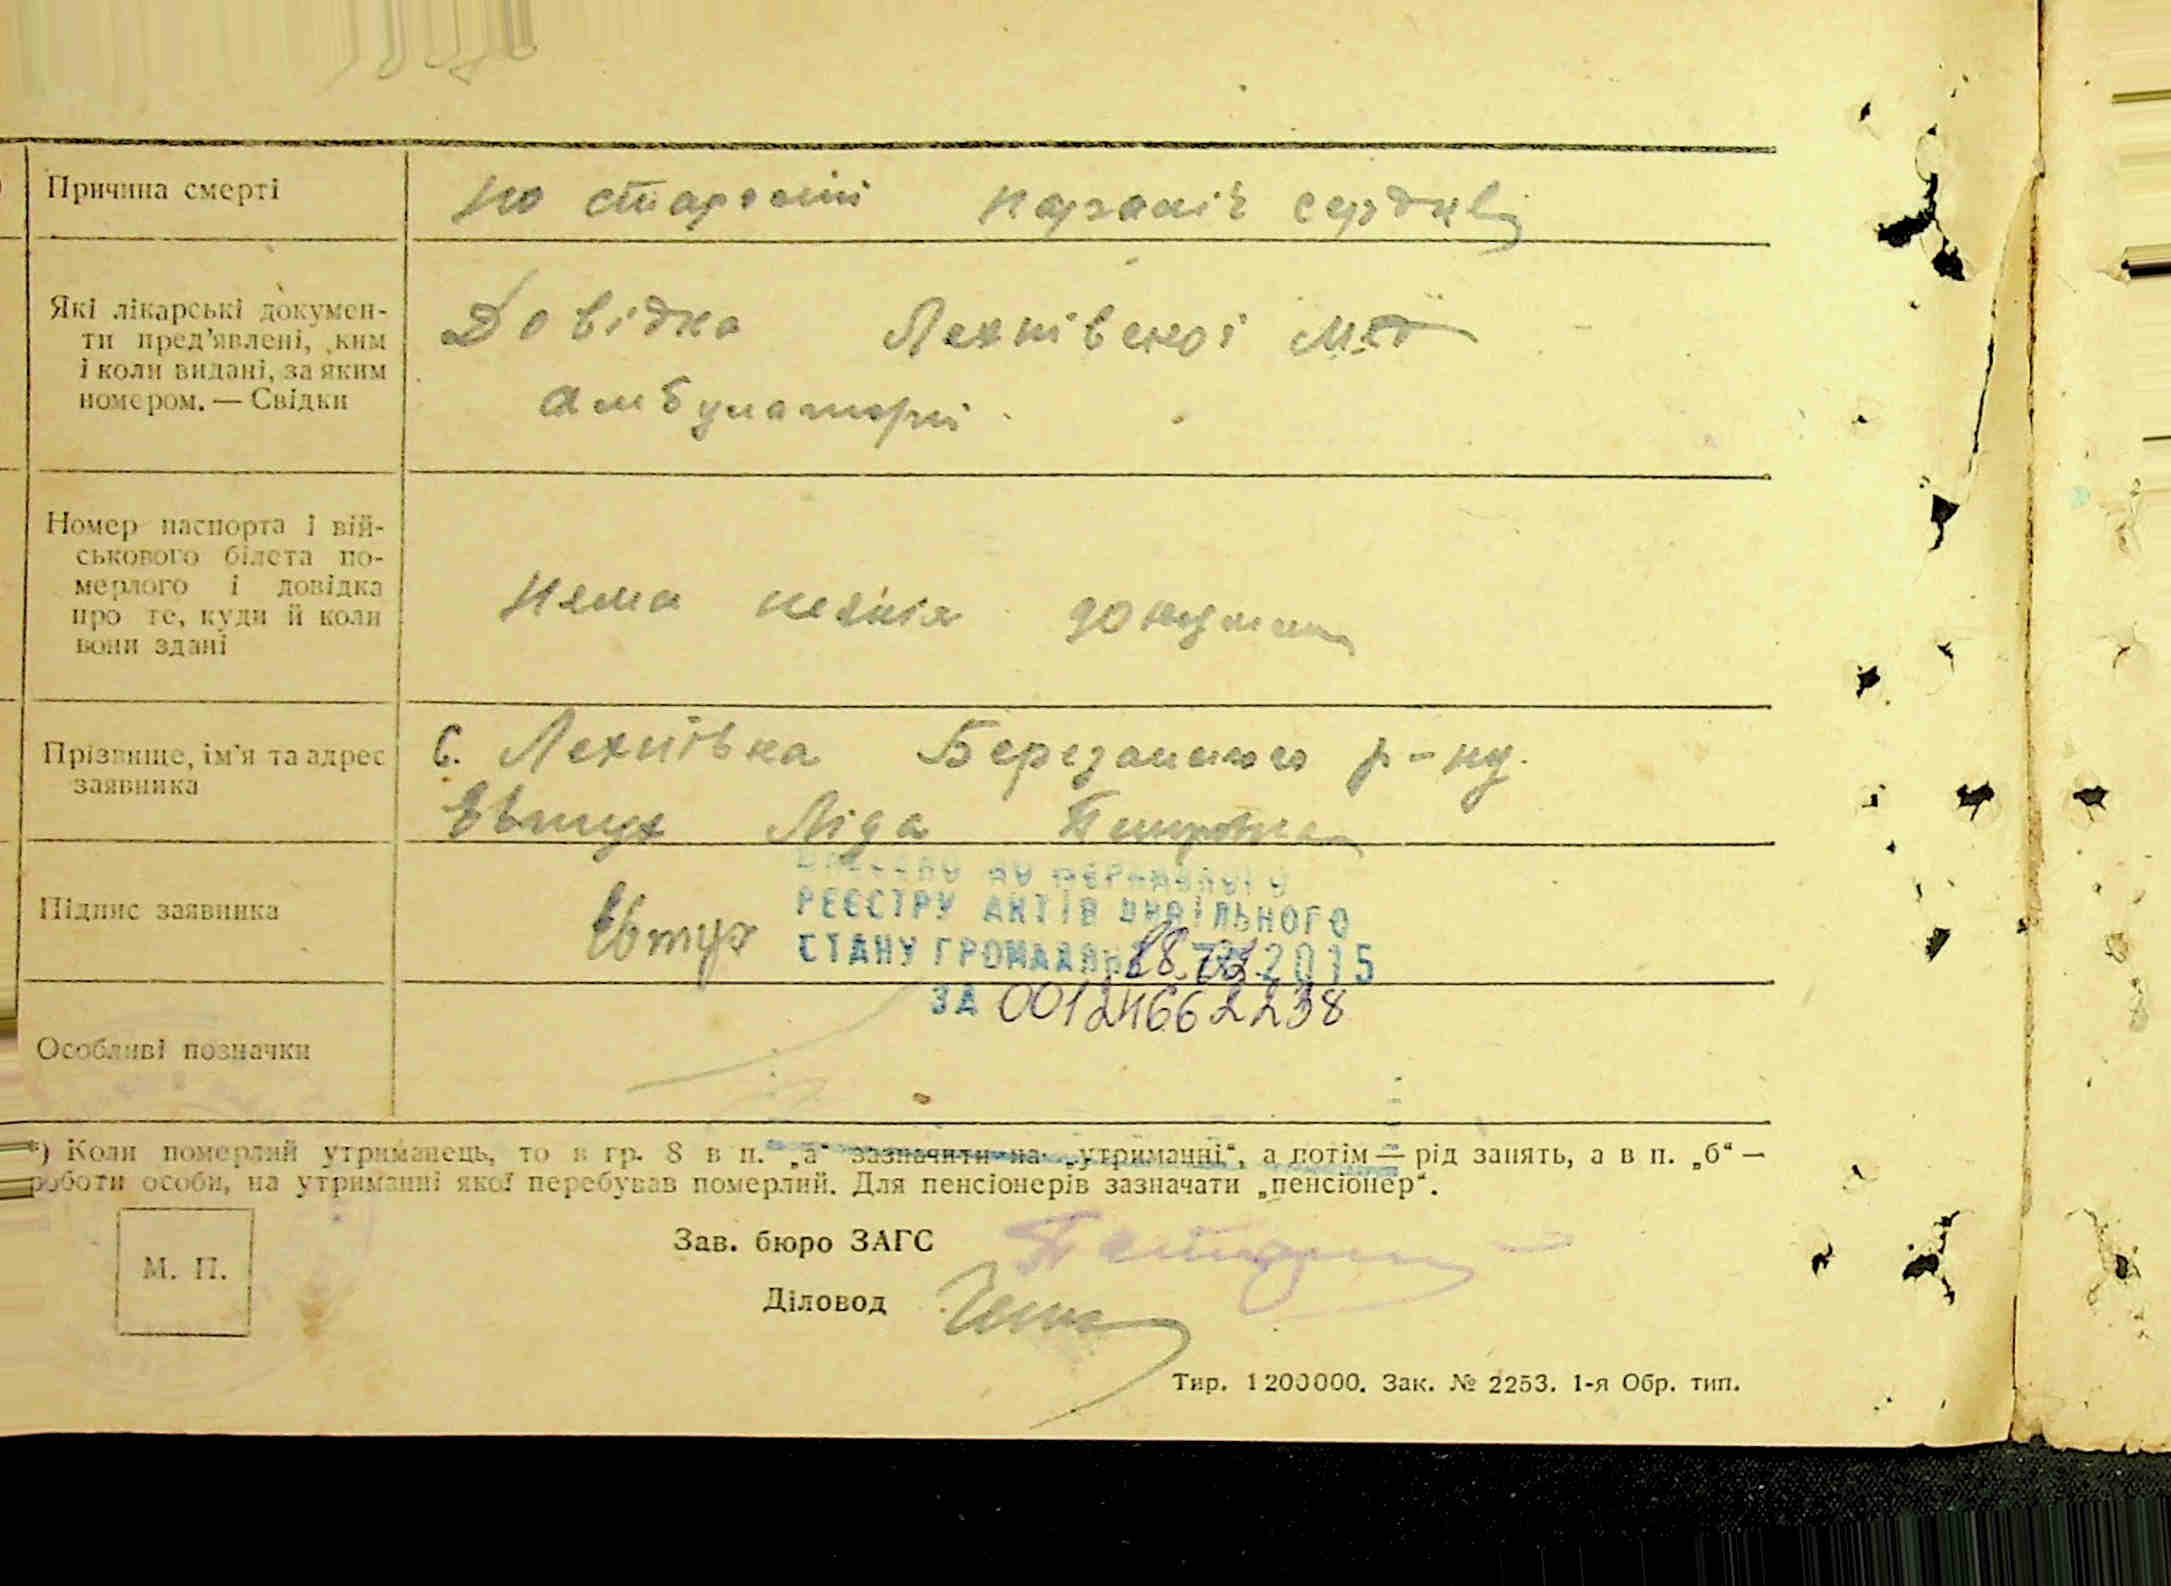 Причина смерті
по старості параліч сердця
Які лікарські докумен-
ти пред’явлені, ким
і коли видані, за яким
номером. — Свідки
Довідка Лехнівської мед
амбулаторії
Номер паспорта і вій-
ськового білета по-
мерлого і довідка
про те, куди й коли
вони здані
Нема
Прізвище, ім’я та адрес
заявника
с. Лехнівка Березанського р-ну.
Евтух Ліда
Підпис заявника
Евтух
РЕЄСТРУ АКТІВ ЦИВІЛЬНОГО
СТАНУ ГРОМАДЯН 2015
ЗА 00124662238
Особливі позначки
*) Коли померлий утриманець, то в гр. 8 в п. „а“ зазначити на „утриманні“, а потім — рід занять, а в п. „б“ —
роботи особи, на утриманні якої перебував померлий. Для пенсіонерів зазначати „пенсіонер“.
М. П.
Зав. бюро ЗАГС
Діловод
Тир. 1200000. Зак. № 2253. 1-я Обр. тип.